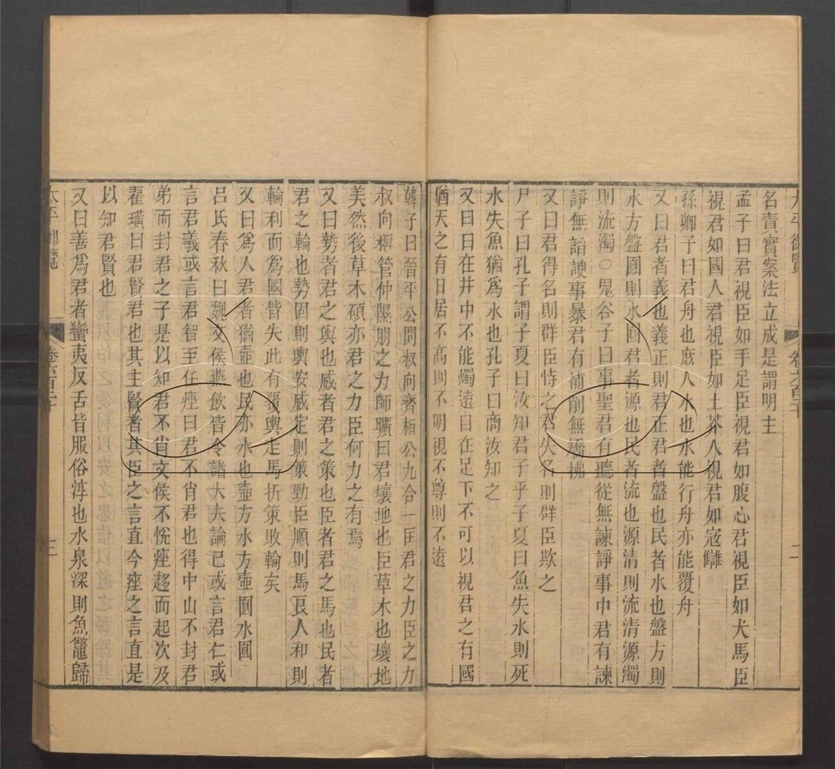 太平御覽　卷六百二十　二
名責實案法立成是謂明主
孟子曰君視臣如手足臣視君如腹心君視臣如犬馬臣
視君如國人君視臣如土芥人視君如寇讎
孫卿子曰君舟也庻人水也水能行舟亦能覆舟
又曰君者義也義正則君正君者盤也民者水也盤方則
水方盤圎則水圎君者源也民者流也源清則流清源濁
則流濁〇鬼谷子曰事聖君有聽從無諫諍事中君有諫
諍無謟諛事暴君有補削無矯拂
又曰君得名則群臣恃之君失名則群臣欺之
尸子曰孔子謂子夏曰汝知君子乎子夏曰魚失水則死
水失魚猶爲水也孔子曰商汝知之
又曰日在井中不能燭遠目在足下不可以視君之有國
猶天之有日居不高則不明視不尊則不遠
韓子曰晉平公問叔向齊桓公九合一匡君之力臣之力
叔向稱管仲隰朋之力師曠曰君壤地也臣草木也壤地
美然後草木碩亦君之力臣何力之有焉
又曰勢者君之輿也威者君之策也臣者君之馬也民者
君之輪也勢固則輿安威定則策勁臣順則馬良人和則
輪利而爲國皆失此有覆輿走馬折策敗輪矣
又曰爲人君者猶壷也民亦水也壷方水方壷圎水圎
吕氏春秋曰魏文侯燕飲皆令諸大夫論已或言君仁或
言君義或言君智至任座曰君不肖君也得中山不封君
弟而封君之子是以知君不肖文侯不恱座趍而起次及
翟璜曰君賢君也其主賢者其臣之言直今座之言直是
以知君賢也
又曰善爲君者蠻夷反舌皆服俗淳也水泉深則魚鼈歸
太平御覽　卷六百二十　三